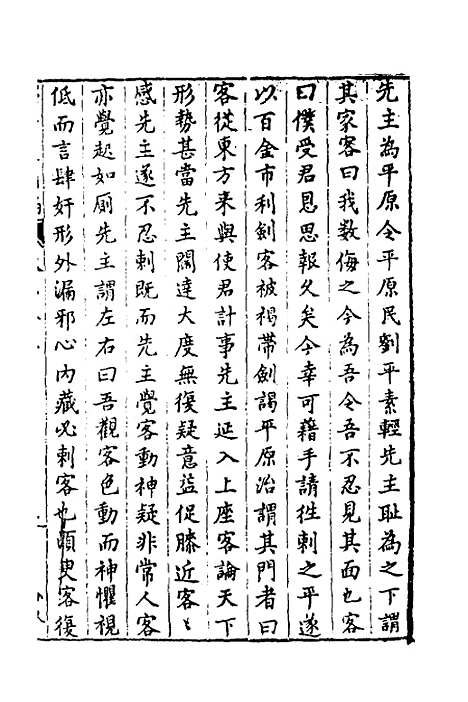 先主為平原令平原民劉平素輕先主恥為之下謂
其家客曰我数侮之今為吾令吾不忍見其面也客
曰僕受君恩思報久矣今幸可藉手請徃刺之平遂
以百金市利劍客被褐帶劍謁平原治謂其門者曰
客從東方來與使君計事先主延入上座客論天下
形勢甚當先主闊達大度無復疑意益促膝近客〻
感先主遂不忍刺既而先主覺客動神疑非常人客
亦覺起如厠先主謂左右曰吾觀客色動而神懼視
低而言肆奸形外漏邪心內藏必刺客也須臾客復